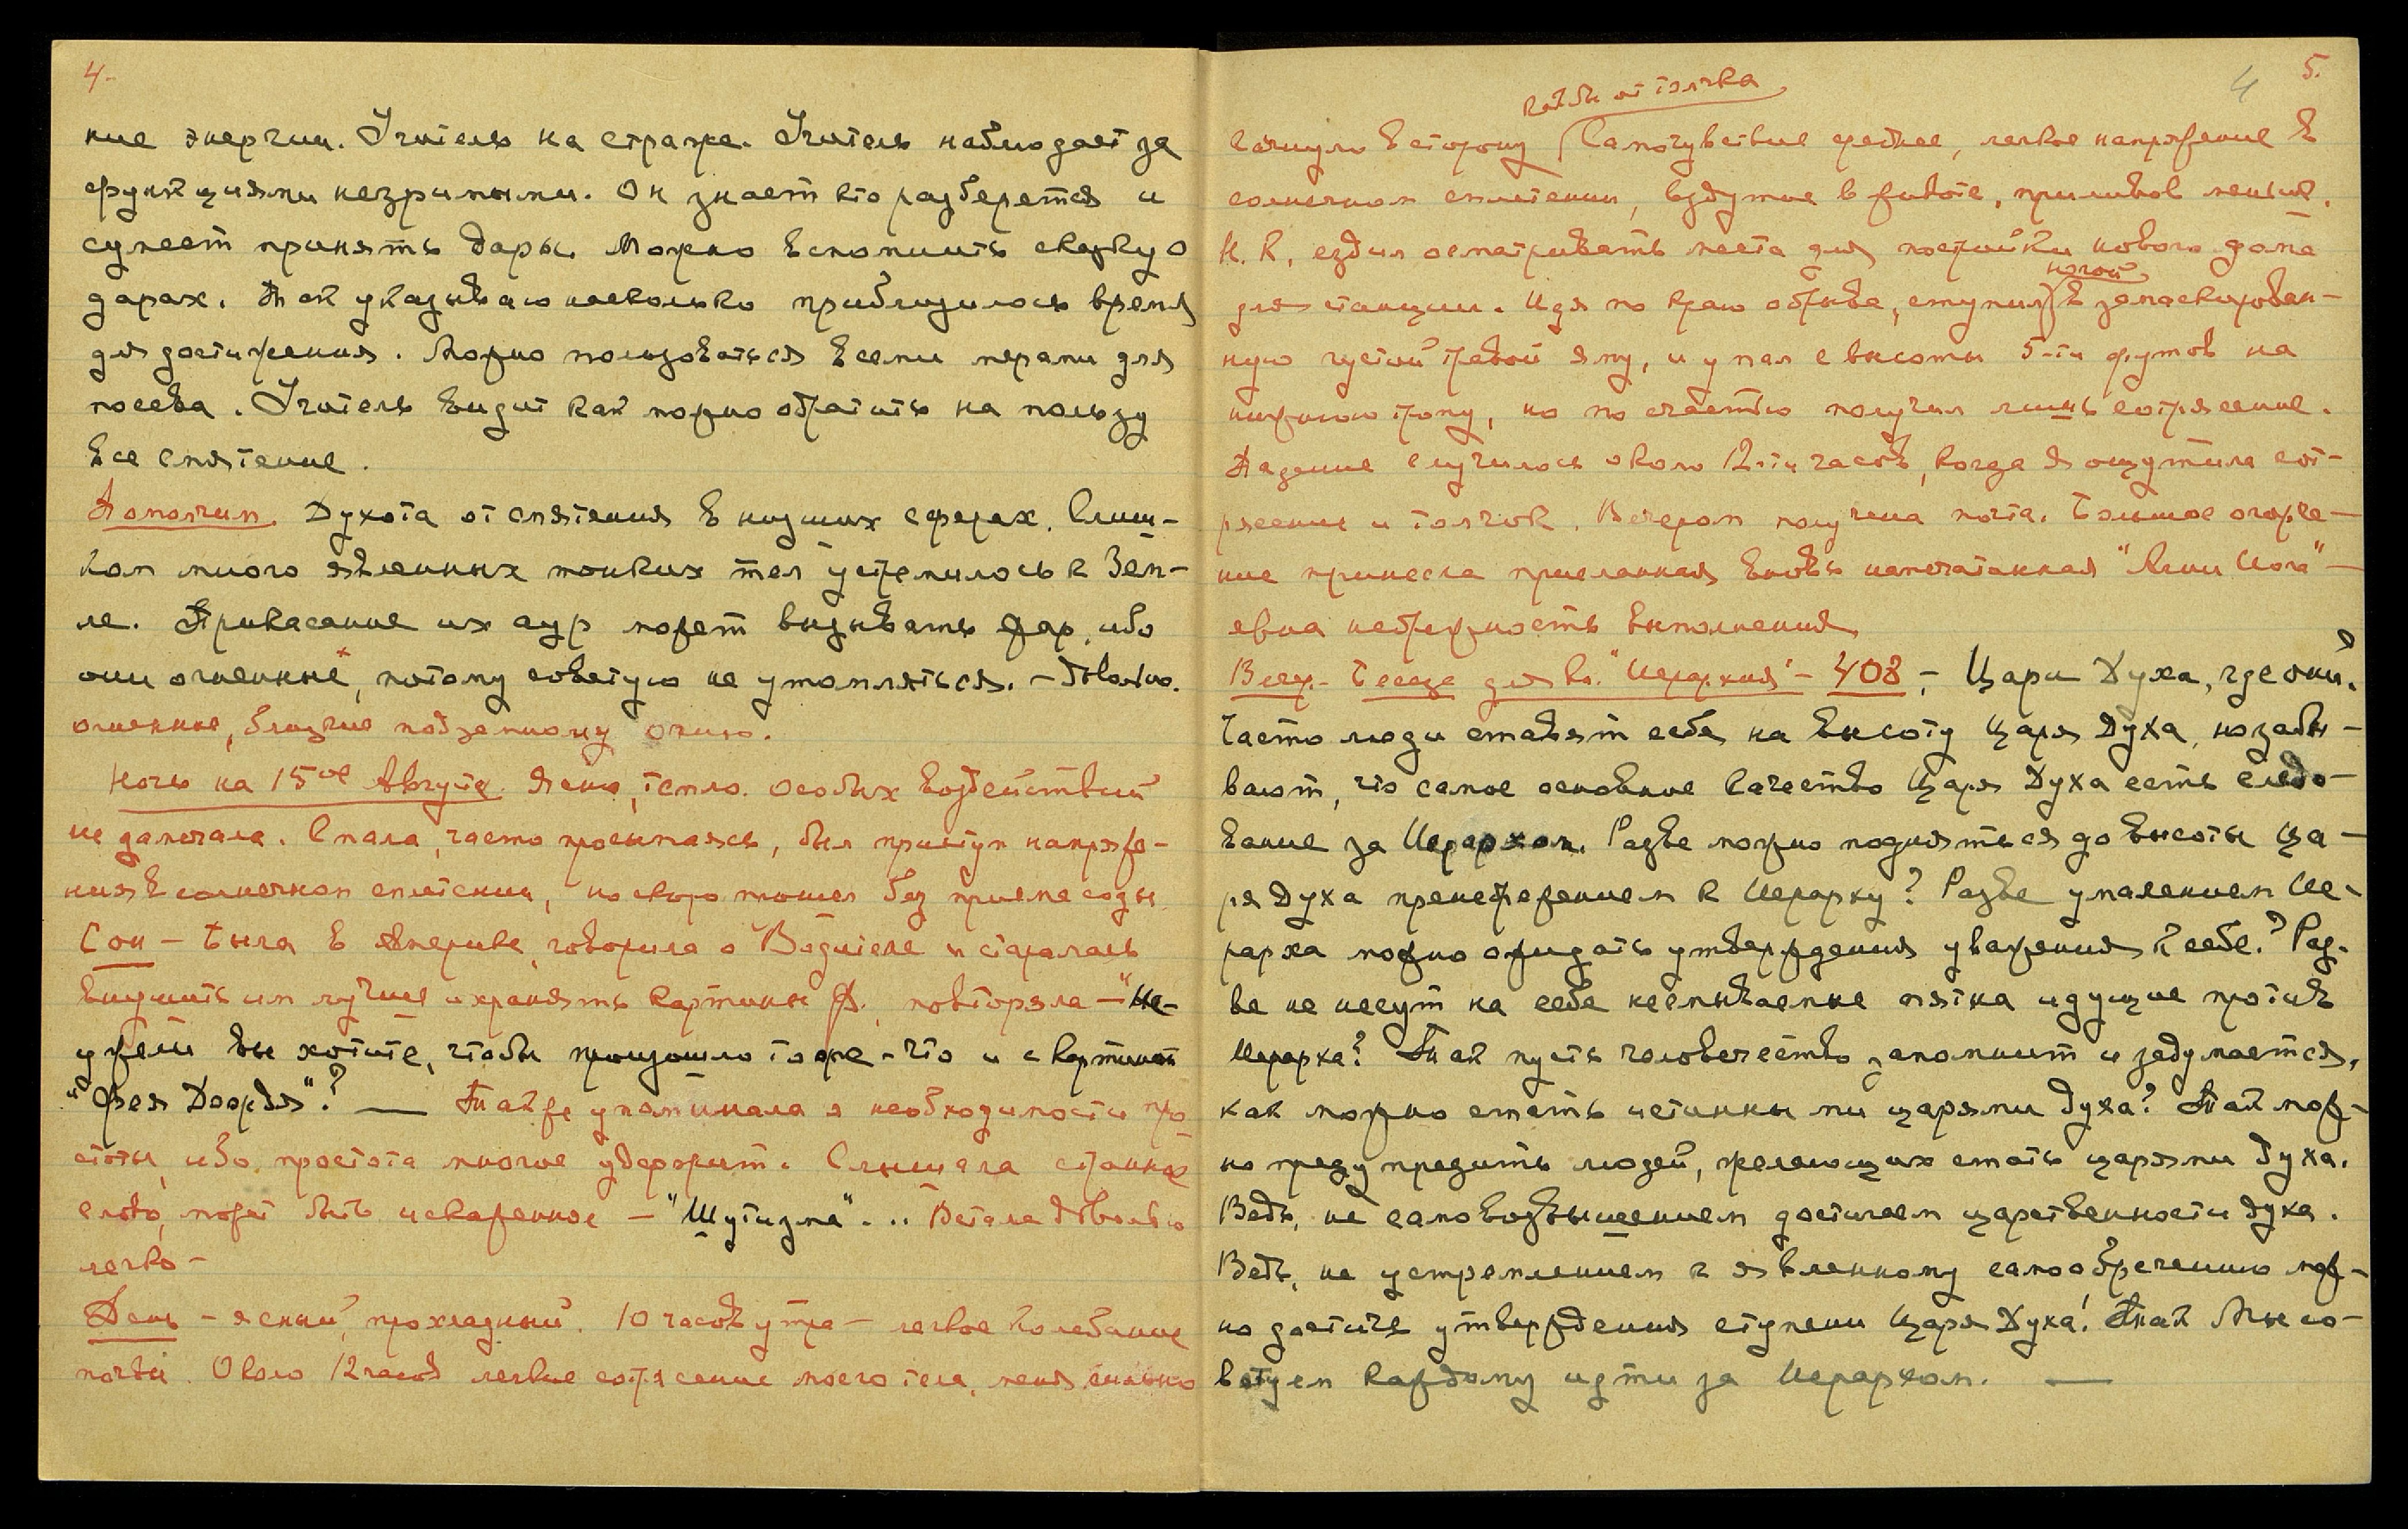 4-
ние энергии. Учитель на страже. Учитель наблюдает за
функциями незримыми. Он знает кто разберется и
сумеет принять дары. Можно вспомнить сказку о
дарах. Так указываю насколько приблизилось время
для достижения. Можно пользоваться всеми мерами для
посева. Учитель видит как можно обратить на пользу
все смятение.
Пополчим. Духота от смятения в низших сферах. Слиш-
ком много явленных тонких тел устремилось к Зем-
ле. Прикасание их аур может вызывать жар, ибо
они огненные, потому советую не утомляться. - Довольно.
огненные, близкие подземному огню.
Ночь на 15ое Августа. Ясно, тепло. Особых воздействий
не замечала. Спала, часто просыпаясь, был приступ напряже-
ния в солнечном сплетении, но скоро прошел без приема соды
Сон - Была в Америке, говорила о Водителе и старалась
внушить им лучше охранять картины Ф., повторяла - "Не-
ужели вы хотите, чтобы произошло то же - что и с картиной
"Фея Дождя"? — Также упоминала о необходимости про
стоты, ибо простота многое удержит. Слышала странное
слово, может быть искаженное - "Шутизма"... Встала довольно
легко -
День - ясный, прохладный. 10 часов утра - легкое колебание
почвы. Около 12 часов легкое сотрясение моего тела, меня сильно
4
5.
как бы от толчка
качнуло в сторону (Самочувствие среднее, легкое напряжение в
солнечном сплетении, вздутие в животе, приливов меньше.
Н. К. ездил осматривать места для постройки нового дома
ногой
для станции. Идя по краю обрыва, ступил в замаскирован-
ную густой травой яму, и упал с высоты 5-ти футов на
нижнюю тропу, но по счастью получил лишь сотрясение.
Падение случилось около 12-ти часов, когда я ощутила сот-
рясение и толчок. Вечером получена почта. Большое огорче-
ние принесла присланная вновь напечатанная "Агни Йога" -
явна небрежность выполнения
Веч. Беседа для кн. "Иерархия" - 408 - Цари Духа, где они?
Часто люди ставят себя на высоту Царя Духа, но забы-
вают, что самое основное качество Царя Духа есть следо-
вание за Иерархом. Разве можно подняться до высоты Ца-
ря Духа пренебрежением к Иерарху? Разве умалением Ие-
рарха можно ожидать утверждения уважения к себе? Раз-
ве не несут на себе несмываемые пятна идущие против
Иерарха? Так пусть человечество запомнит и задумается,
как можно стать истинны ми царями духа? Так мож-
но предупредить людей, желающих стать царями духа.
Ведь, не самовозвышением достигаем царственности духа.
Ведь, не устремлением к явленному самообречению мож-
но достичь утверждения ступени Царя Духа! Так Мы со-
ветуем каждому идти за Иерархом. —